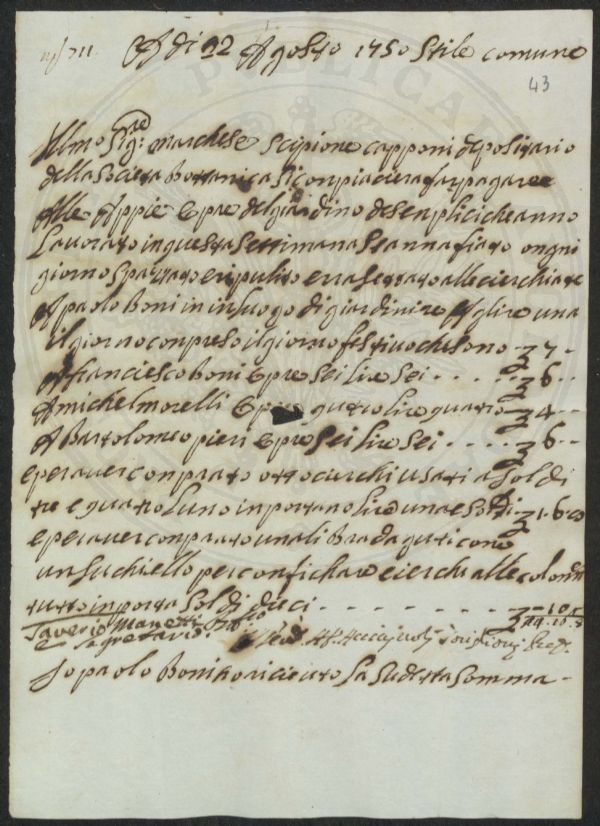 A di 22 Agosto 1750 Stile comune
43
Illmo Sigre: marchese Scipione capponi depositario
della Societa Bottanica Si conpiaciera far pagare
Alle Appie Opre del giardino de senplici che anno
Lavorato in questa Settimana Se annafiato ongni
giorno Spazzato e ripulito
A paolo Boni in luogo di giardiniere A lire una
il giorno conpreso il giorno festivo che sono 7 -
A franciesco Boni Opre Sei lire Sei - - - - - 6 - -
A michel morelli Opre quatro lire quatro 4 - -
A Bartolomeo pieri Opre Sei lire Sei - - - - 6 - -
e per aver conprato otto cierchi usati a Soldi
tre e quatro l'uno inportano lire una e Soldi 1.6.8
e per aver conprato una libra d aguti con
un Suchiello per confichare e cierchi alle colonne
tutto inporta Soldi dieci - - - - - - - - - - 10 -
Saverio Manetti
Segretario
Io paolo Boni ho ricieuto la Sudetta Somma -